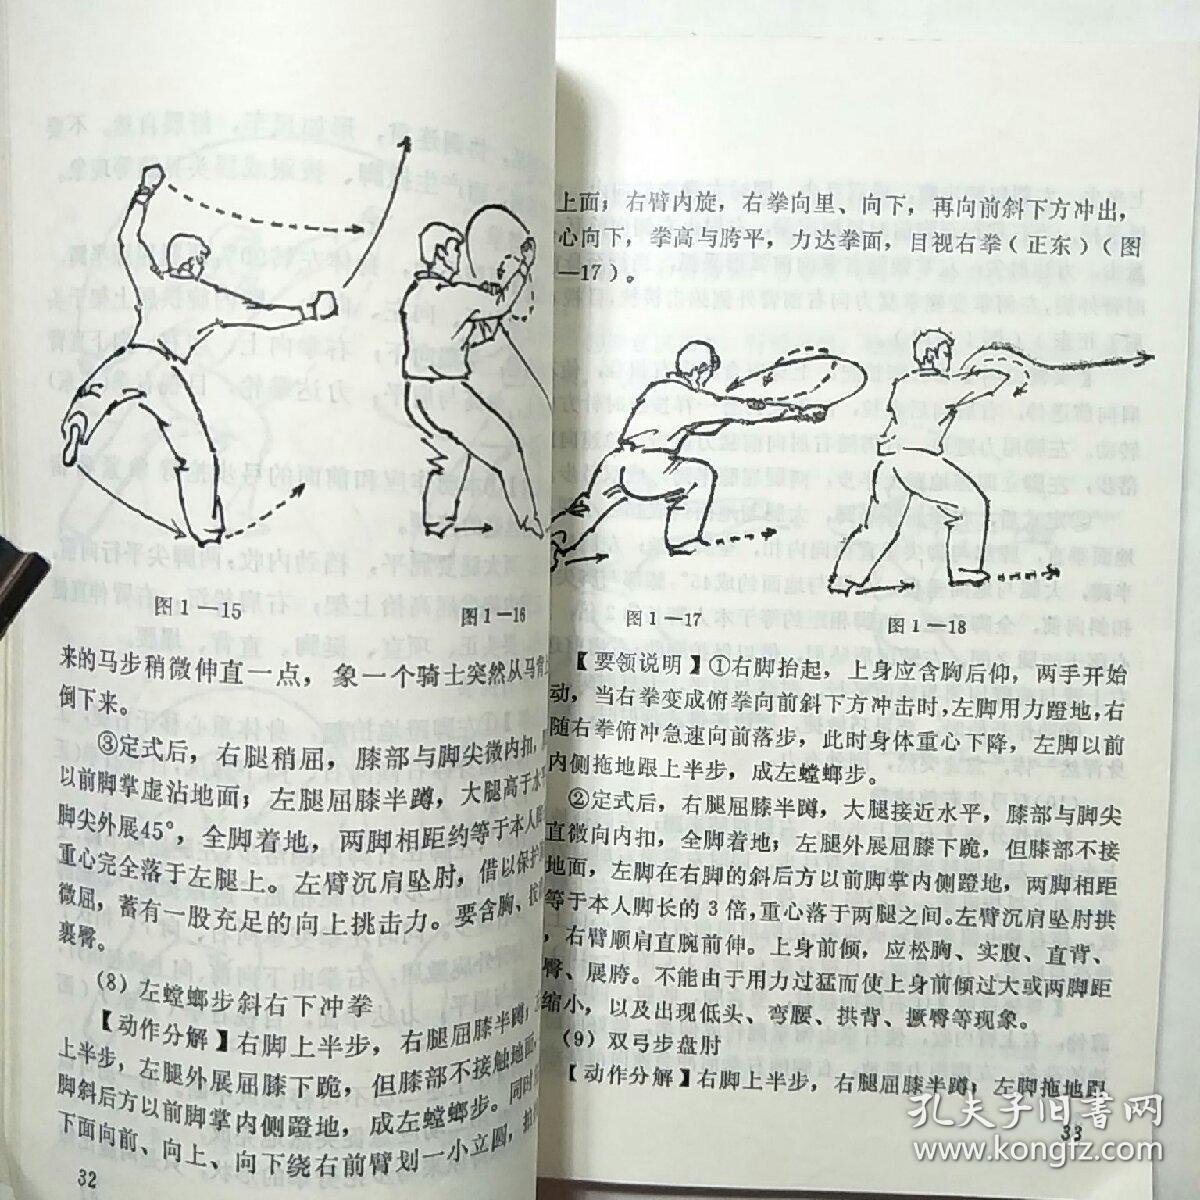 图1—15
图1—16
来的马步稍微伸直一点，象一个骑士突然从马背
倒下来。
③定式后，右腿稍屈，膝部与脚尖微内扣，
以前脚掌虚沾地面；左腿屈膝半蹲，大腿高于水平
脚尖外展45°，全脚着地，两脚相距约等于本人脚
重心完全落于左腿上。左臂沉肩坠肘，借以保护
微屈，蓄有一股充足的向上挑击力。要含胸、拔
裹臀。
（8）左螳螂步斜右下冲拳
【动作分解】右脚上半步，右腿屈膝半蹲；
上半步，左腿外展屈膝下跪，但膝部不接触地面，
脚斜后方以前脚掌内侧蹬地，成左螳螂步。同时
下面向前、向上、向下绕右前臂划一小立圆，
32
上面；右臂内旋，右拳向里、向下，再向前斜下方冲出，
心向下，拳高与胯平，力达拳面，目视右拳（正东）（图
—17）。
图1—17
图1—18
【要领说明】①右脚抬起，上身应含胸后仰，两手开始
动，当右拳变成俯拳向前斜下方冲击时，左脚用力蹬地，右
随右拳俯冲急速向前落步，此时身体重心下降，左脚以前
内侧拖地跟上半步，成左螳螂步。
②定式后，右腿屈膝半蹲，大腿接近水平，膝部与脚尖
直微向内扣，全脚着地；左腿外展屈膝下跪，但膝部不接
地面，左脚在右脚的斜后方以前脚掌内侧蹬地，两脚相距
等于本人脚长的3倍，重心落于两腿之间。左臂沉肩坠肘拱
，右臂顺肩直腕前伸。上身前倾，应松胸、实腹、直背、
臀、展胯。不能由于用力过猛而使上身前倾过大或两脚距
缩小，以及出现低头、弯腰、拱背、撅臀等现象。
（9）双弓步盘肘
【动作分解】右脚上半步，右腿屈膝半蹲；左脚拖地跟
33
孔夫子旧书网
www.kongfz.com